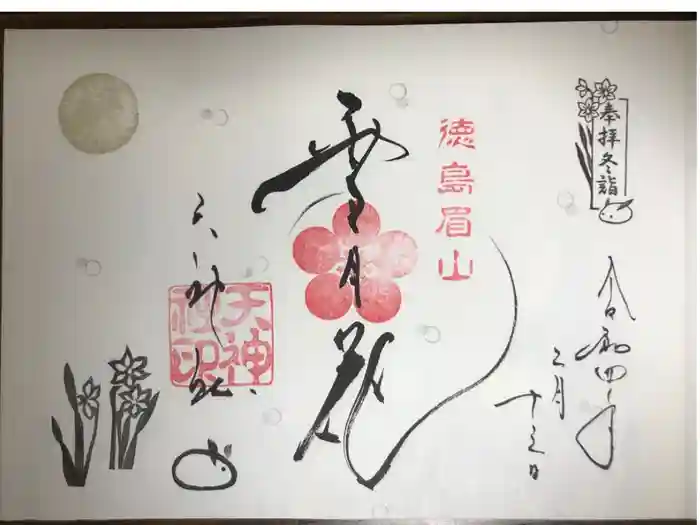 奉拝冬詣
令和四年
二月
十三日
徳島眉山
雪月花
天神社
天神社印